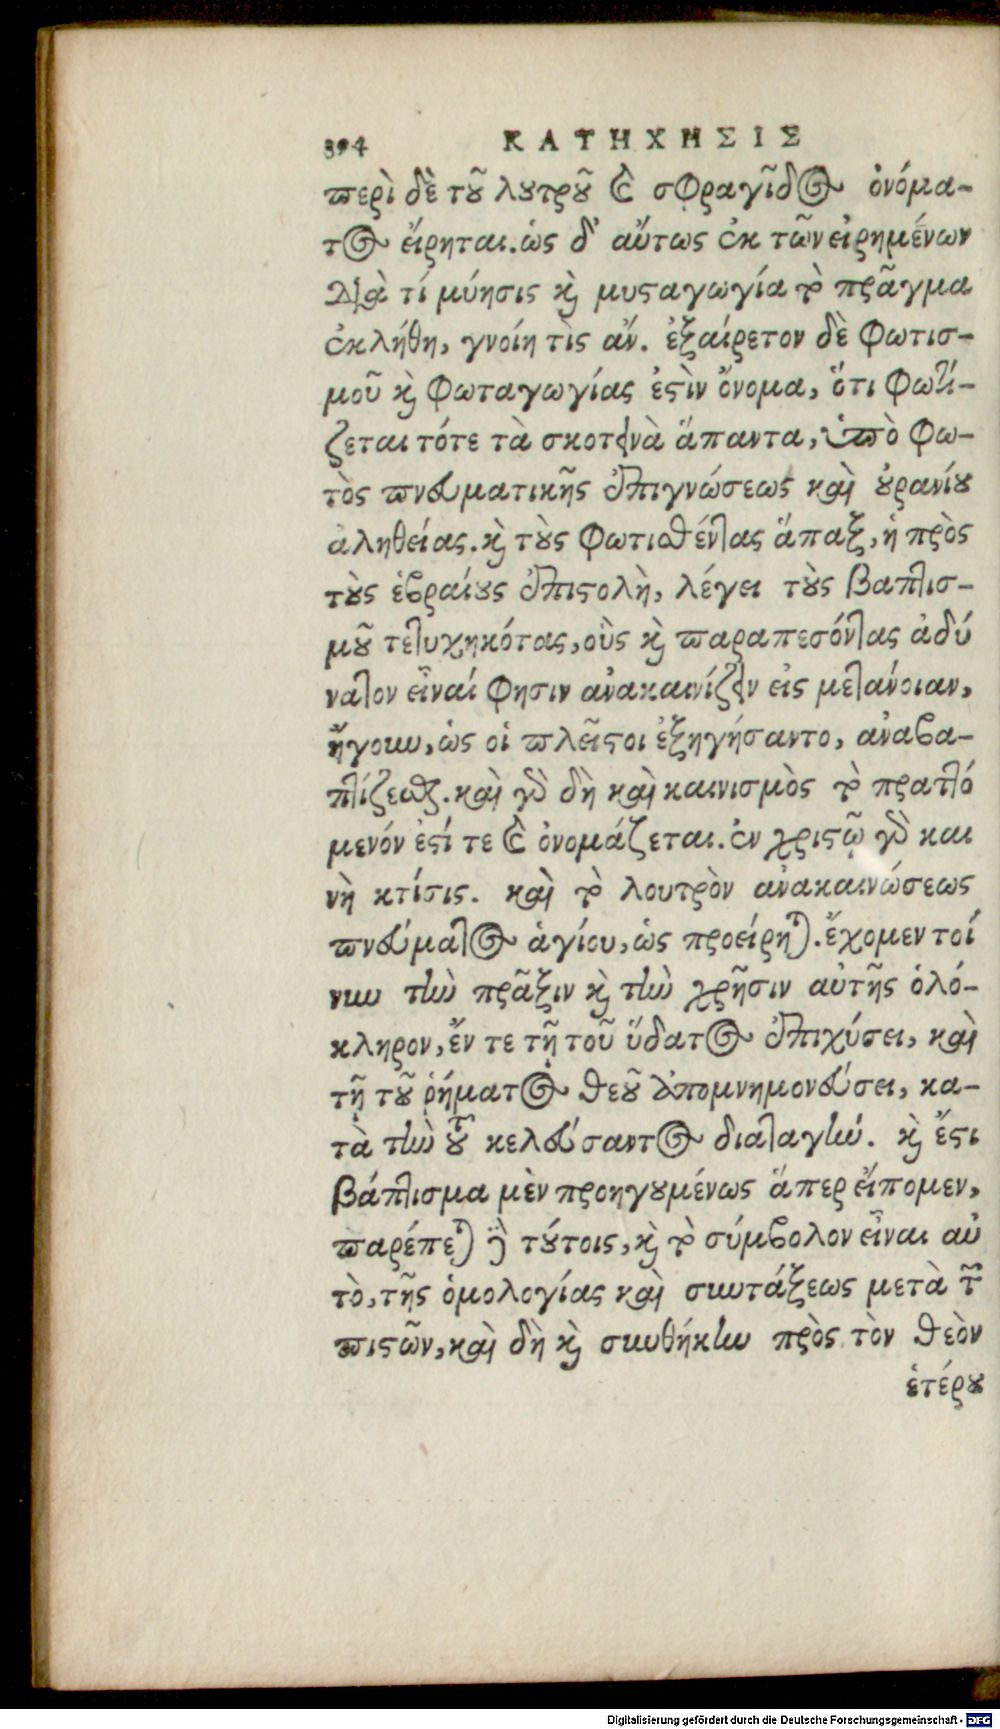 394 ΚΑΤΗΧΗΣΙΣ
περὶ δὲ τοῦ λουτροῦ καὶ σφραγῖδος ὀνόμα-
τος εἴρηται. ὡς δ' αὕτως ἐκ τῶν εἰρημένων
διὰ τί μύησις καὶ μυσταγωγία τὸ πρᾶγμα
ἐκλήθη, γνοίη τὶς ἄν. ἐξαίρετον δὲ φωτισ-
μοῦ καὶ φωταγωγίας ἐστὶν ὄνομα, ὅτι φωτί-
ζεται τότε τὰ σκοτεινὰ ἅπαντα, ὑπὸ φω-
τὸς πνευματικῆς ἐπιγνώσεως καὶ οὐρανίου
ἀληθείας. καὶ τοὺς φωτισθέντας ἅπαξ, ἡ πρὸς
τοὺς ἑβραίους ἐπιστολὴ, λέγει τοὺς βαπτισ-
μοῦ τετυχηκότας, οὓς καὶ παραπεσόντας ἀδύ
νατον εἶναί φησιν ἀνακαινίζειν εἰς μετάνοιαν,
ἤγουν, ὡς οἱ πλεῖστοι ἐξηγήσαντο, ἀναβα-
πτίζεσθαι. καὶ γὰρ δὴ καὶ καινισμὸς τὸ πραττό
μενόν ἐστί τε καὶ ὀνομάζεται. ἐν χριστῷ γὰρ και
νὴ κτίσις. καὶ τὸ λουτρὸν ἀνακαινώσεως
πνεύματος ἁγίου, ὡς προείρηται. ἔχομεν τοί
νυν τὴν πρᾶξιν καὶ τὴν χρῆσιν αὐτῆς ὁλό-
κληρον, ἔν τε τῇ τοῦ ὕδατος ἐπιχύσει, καὶ
τῇ τοῦ ῥήματος θεοῦ ὑπομνημονεύσει, κα-
τὰ τὴν τοῦ κελεύσαντος διαταγήν. καὶ ἔστι
βάπτισμα μὲν προηγουμένως ἅπερ εἴπομεν,
παρέπεται δὲ τούτοις, καὶ τὸ σύμβολον εἶναι αὐ
τὸ, τῆς ὁμολογίας καὶ συντάξεως μετὰ τῶν
πιστῶν, καὶ δὴ καὶ συνθήκην πρὸς τὸν θεὸν
ἑτέρου
Digitalisierung gefördert durch die Deutsche Forschungsgemeinschaft - DFG